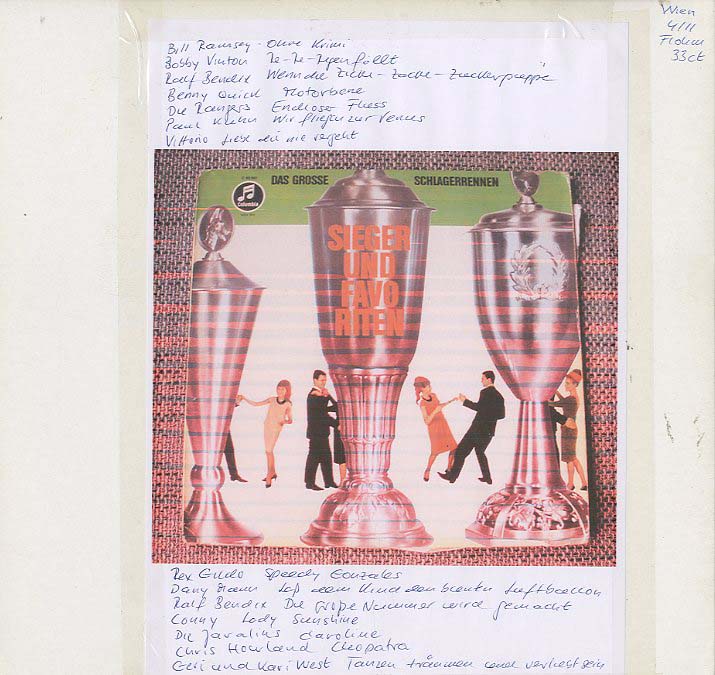 Bill Ramsey - Ohne Krimi
Bobby Vinton Re-Re-Regen fällt
Ralf Bendix Wenn die Zicke - Zacke - Zuckerpuppe
Benny Quick Motorbiene
Die Rangers Endloser Fluss
Paul Kuhn Wir fliegen zur Venus
Vittorio Liebe die nie vergeht
Wien
4/11
Flohm
33ct
DAS GROSSE SCHLAGERRENNEN
Columbia
SIEGER
UND
FAVO
RITEN
Rex Gildo Speedy Gonzales
Dany Mann Laß dem Kind den bunten Luftballon
Ralf Bendix Die große Nummer wird gemacht
Conny Lady Sunshine
Die Javalins Caroline
Chris Howland Cleopatra
Geri und Kari West Tanzen träumen und verliebt sein